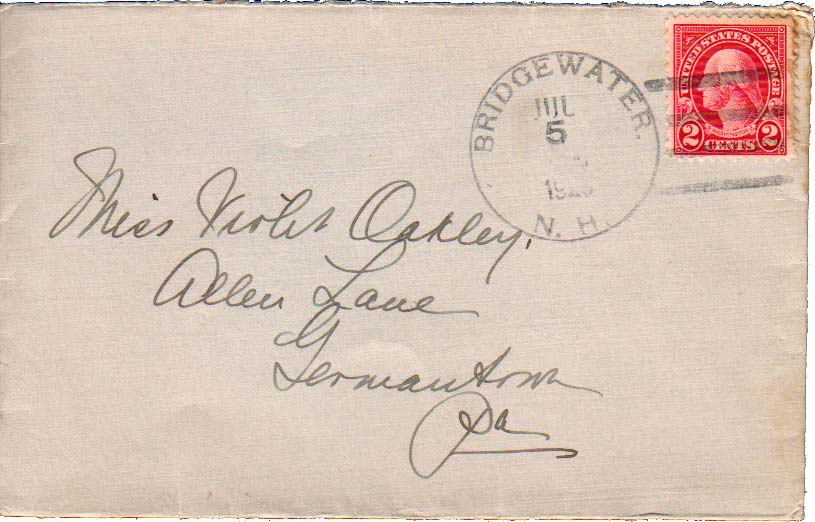 BRIDGEWATER.
JUL
5
N. H.
UNITED STATES POSTAGE
WASHINGTON
2 CENTS 2
Miss Violet Oakley,
Allen Lane
Germantown
Pa